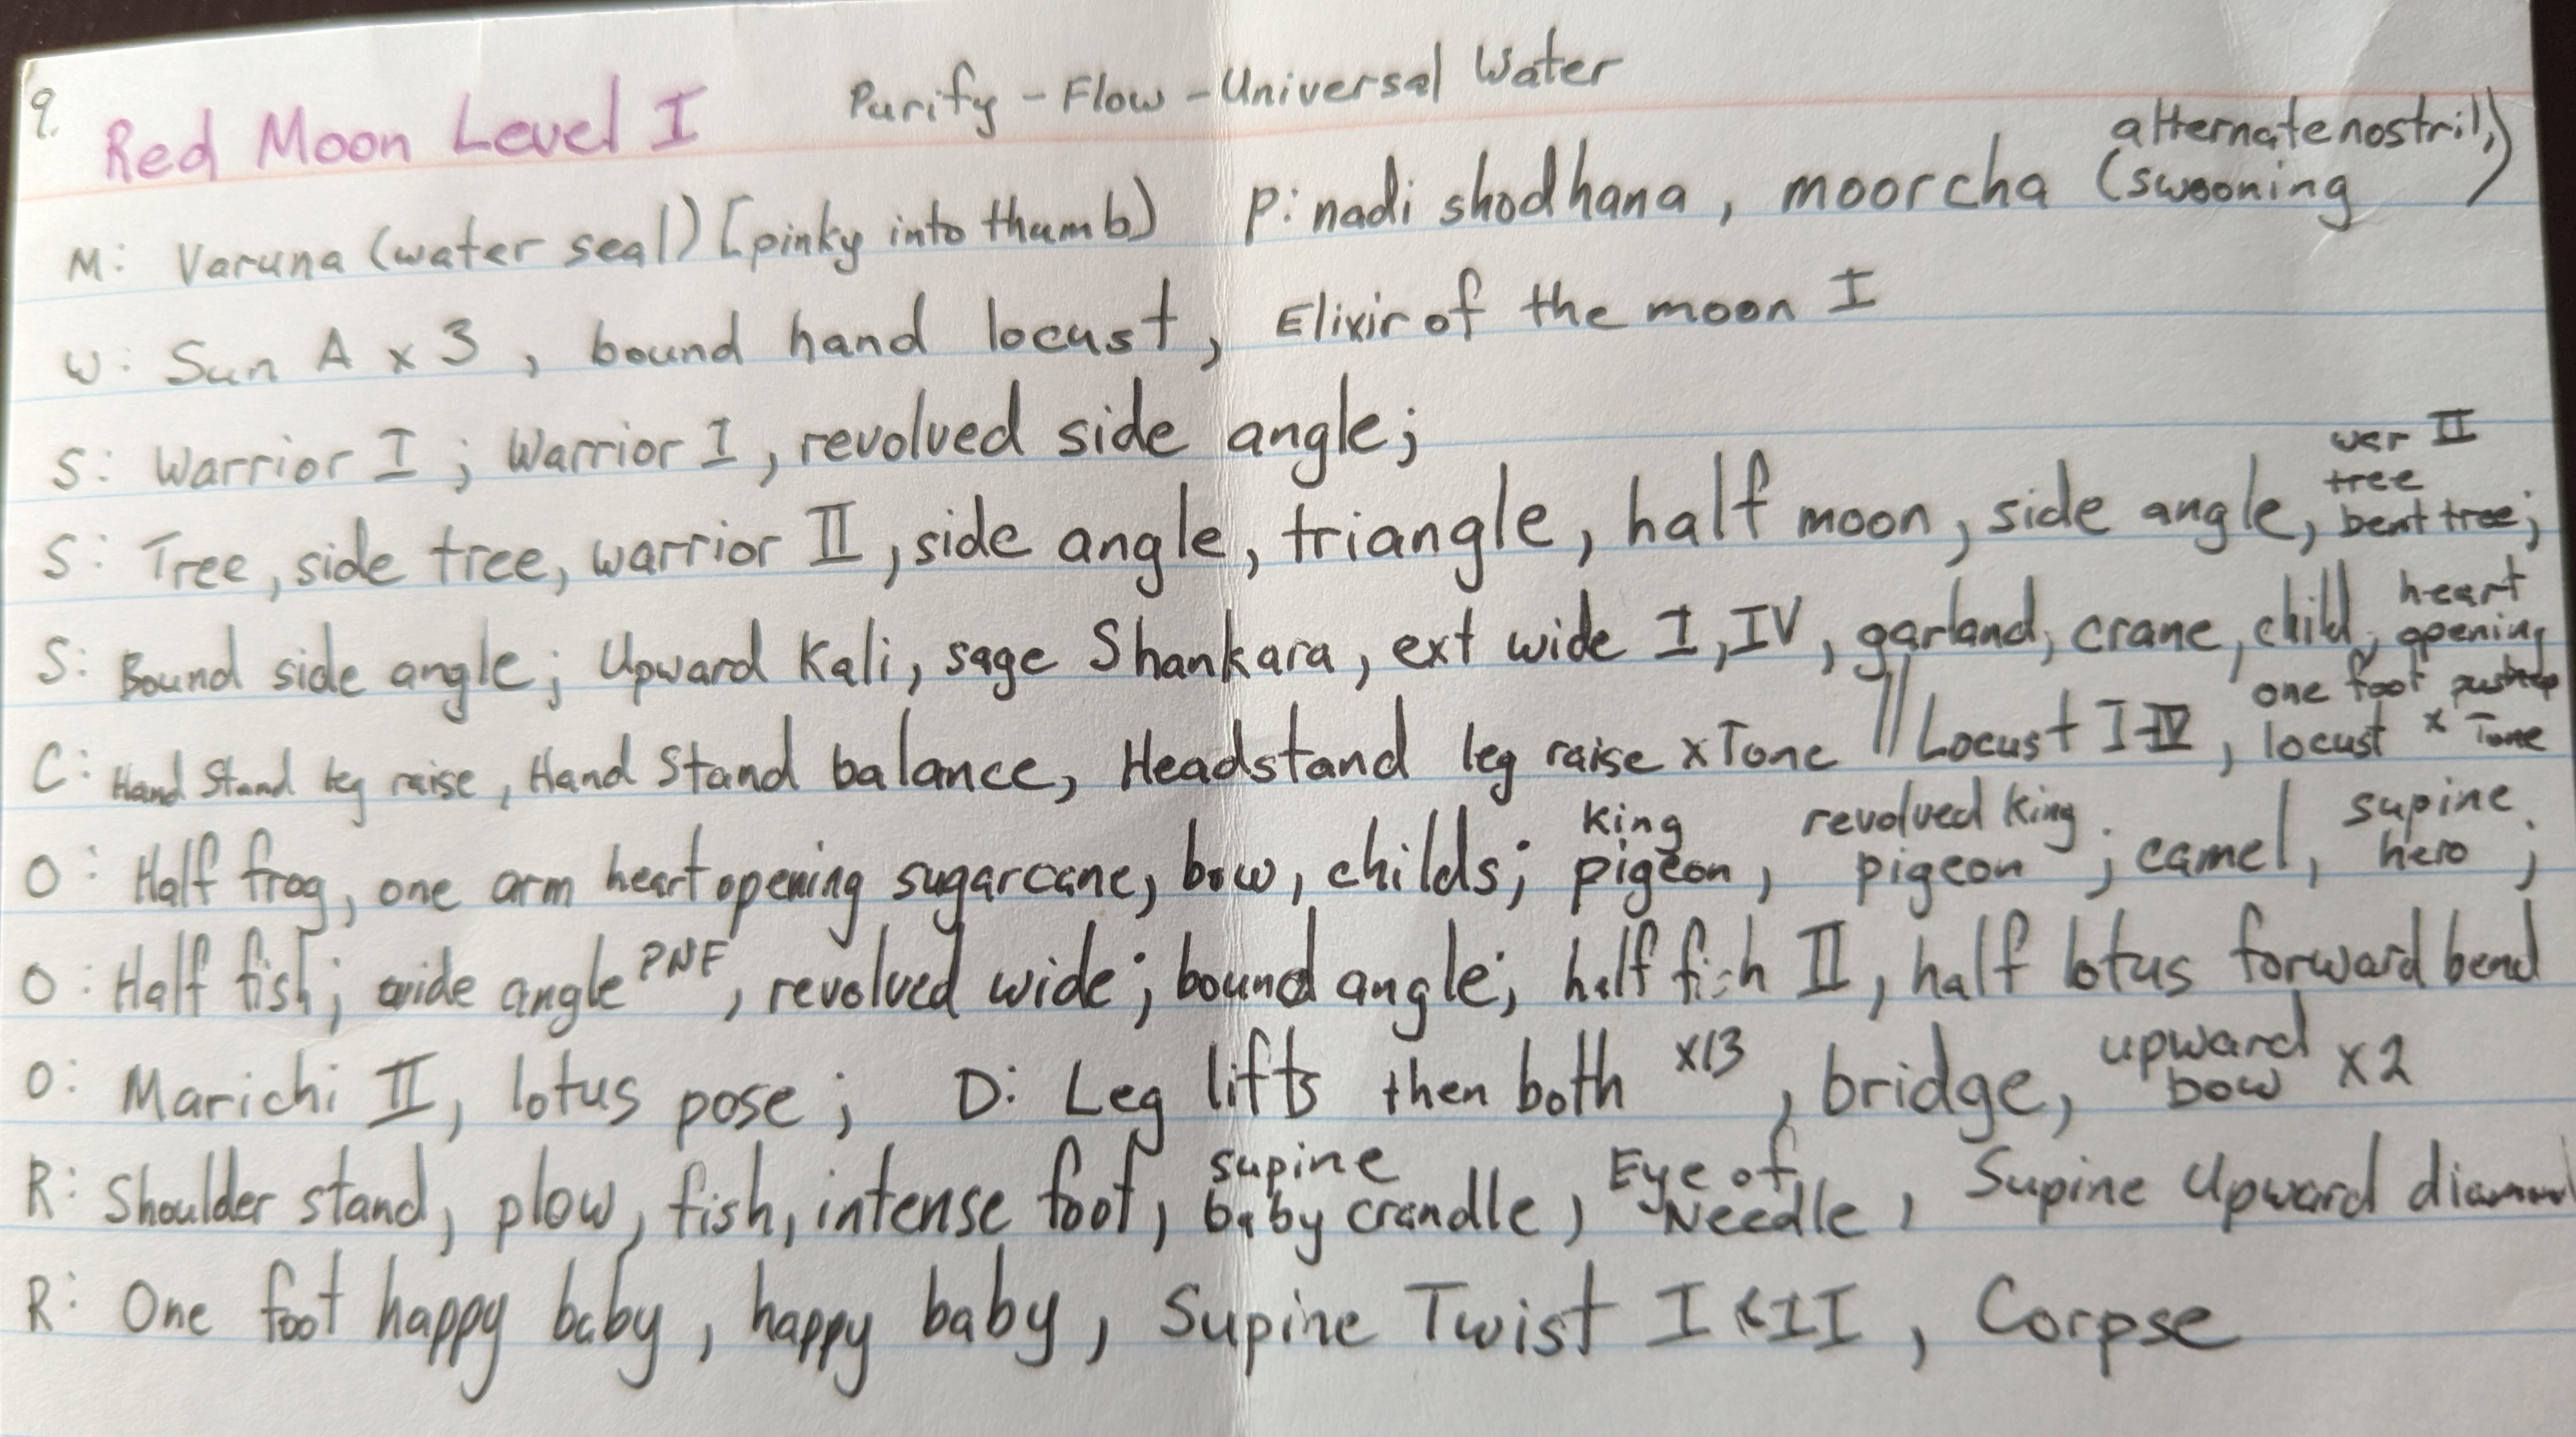 9. Red Moon Level I Purify - Flow - Universal Water
M: Varuna (water seal) [pinky into thumb) P: nadi shodhana, moorcha (alternate nostril, swooning)
W: Sun A x 3, bound hand locust, Elixir of the moon I
S: Warrior I; Warrior I, revolved side angle;
S: Tree, side tree, warrior II, side angle, triangle, half moon, side angle, war II tree bent tree;
S: Bound side angle; Upward Kali, sage Shankara, ext wide I, IV, garland, crane, child, heart opening
C: Hand Stand leg raise, Hand Stand balance, Headstand leg raise x Tone || Locust I-IV, one foot locust x Tone
O: Half frog, one arm heart opening sugarcane, bow, childs; king pigeon, revolved king pigeon; camel, supine hero;
O: Half fish; wide angle PNF, revolved wide; bound angle; half fish II, half lotus forward bend
O: Marichi II, lotus pose; D: Leg lifts then both x13, bridge, upward bow x2
R: Shoulder stand, plow, fish, intense foot, supine baby crandle, Eye of Needle, Supine Upward
R: One foot happy baby, happy baby, Supine Twist I & II, Corpse